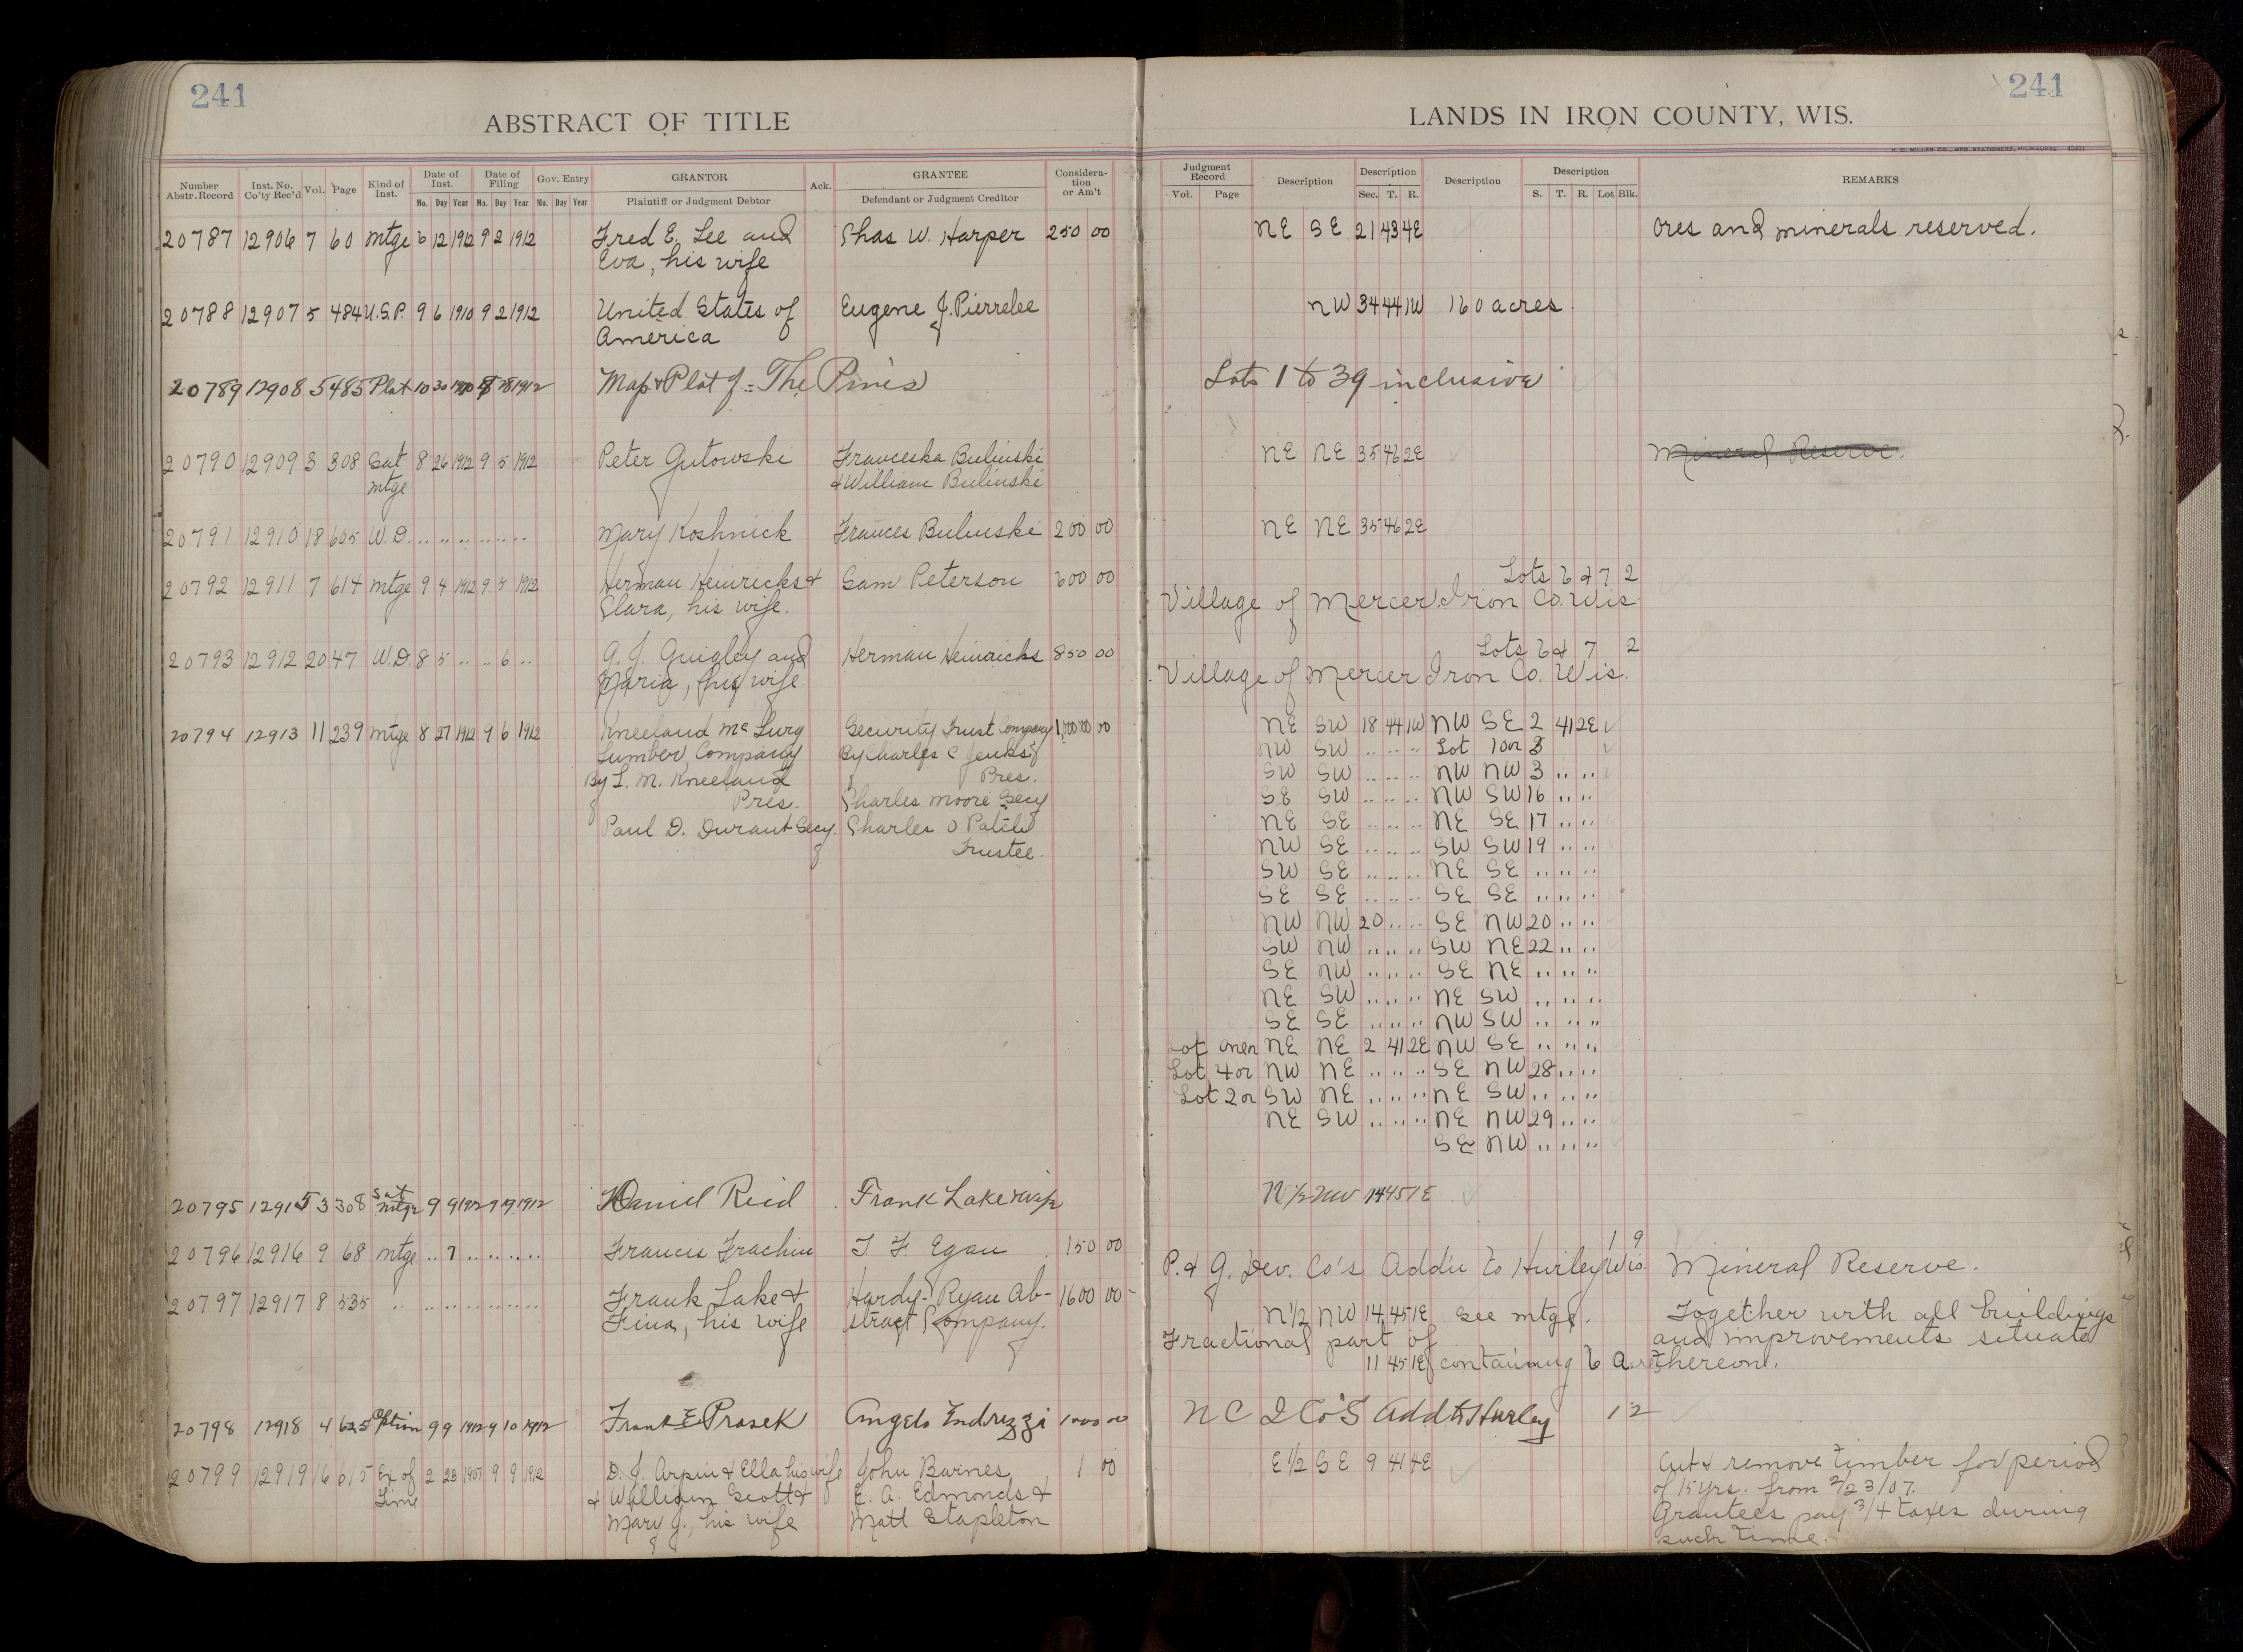 241
241
ABSTRACT OF TITLE
LANDS IN IRON COUNTY, WIS.
H. C. MILLER CO., MFG. STATIONERS, MILWAUKEE
Number Abstr. Record Inst. No. Co'ty Rec'd Vol. Page Kind of Inst. Date of Inst. Mo. Day Year Date of Filing Mo. Day Year Gov. Entry Mo. Day Year GRANTOR Plaintiff or Judgment Debtor Ack. GRANTEE Defendant or Judgment Creditor Consideration or Am't
Judgment Record Vol. Page Description Description Sec. T. R. Description Description S. T. R. Lot Blk. REMARKS
20787 12906 7 60 Mtge 6 12 1912 9 2 1912 Fred E. Lee and Chas W. Harper 250 00 NE SE 21 43 4E Ores and minerals reserved.
Eva, his wife
20788 12907 5 484 U.S.P. 9 6 1910 9 2 1912 United States of Eugene J. Pierrelee NW 34 44 1W 160 acres
America
20789 12908 5 485 Plat 10 30 28 1912 Map & Plat of = The Pines Lots 1 to 39 inclusive
20790 12909 3 308 Sat 8 26 1912 9 5 1912 Peter Gutowski Franceska Bulinski NE NE 35 46 2E Mineral Reserve.
mtge & William Bulinski
20791 12910 18 605 W.D. .. .. .. .. .. .. Mary Koshnick Frances Bulinski 200 00 NE NE 35 46 2E
20792 12911 7 614 Mtge 9 4 1912 9 5 1912 Herman Heinricks & Sam Peterson 600 00 Lots 6 & 7 2
Clara, his wife. Village of Mercer Iron Co. Wis
20793 12912 20 47 W.D. 8 5 .. .. 6 .. A. J. Quigley and Herman Heinricks 850 00 Lots 6 & 7 2
Maria, his wife Village of Mercer Iron Co. Wis.
20794 12913 11 239 Mtge 8 27 1912 9 6 1912 Kneeland McLurg Security Trust Company 1,000,000 00 NE SW 18 44 1W NW SE 2 41 2E
Lumber Company By Charles C Jenks NW SW .. .. .. Lot 1 or 3
By L. M. Kneeland Pres. SW SW .. .. .. NW NW 3 .. ..
Pres. Charles Moore Secy SE SW .. .. .. NW SW 16 .. ..
Paul D. Durant Secy. Charles O Patch NE SE .. .. .. NE SE 17 .. ..
Trustee. NW SE .. .. .. SW SW 19 .. ..
SW SE .. .. .. NE SE .. .. ..
SE SE .. .. .. SE SE .. .. ..
NW NW 20 .. .. SE NW 20 .. ..
SW NW .. .. .. SW NE 22 .. ..
SE NW .. .. .. SE NE .. .. ..
NE SW .. .. .. NE SW .. .. ..
SE SE .. .. .. NW SW .. .. ..
Lot NE NE 2 41 2E NW SE .. .. ..
Lot 4 or NW NE .. .. .. SE NW 28 .. ..
Lot 2 or SW NE .. .. .. NE SW .. .. ..
NE SW .. .. .. NE NW 29 .. ..
SE NW .. .. ..
20795 12915 3 308 Sat mtge 9 9 1912 9 9 1912 Daniel Reid Frank Lake & wife N 1/2 NW 14 45 1E
20796 12916 9 68 Mtge .. 7 .. .. .. .. Francis Frachin T F Egan 150 00 1 9
P. & G. Dev. Co's Addn to Hurley Wis. Mineral Reserve.
20797 12917 8 535 .. .. .. .. .. .. .. Frank Lake & Hardy-Ryan Ab- 1600 00 N 1/2 NW 14 45 1E See mtge. Together with all buildings
Fina, his wife stract Company. Fractional part of and improvements situate
11 45 1E containing 6 thereon.
20798 12918 4 625 Option 9 9 1912 9 10 1912 Frank E Prosek Angelo Endrizzi 1000 00 N C I Co's Add to Hurley 12
20799 12919 16 615 Ex of 2 23 1907 9 9 1912 D. J. Arpin & Ella his wife John Barnes 1 00 E 1/2 SE 9 41 4E Cut & remove timber for period
Time & William Scott & E. A. Edmonds & of 15 yrs. from 2/23/07.
Mary J., his wife Matt Stapleton Grantees pay 3/4 taxes during
such time.